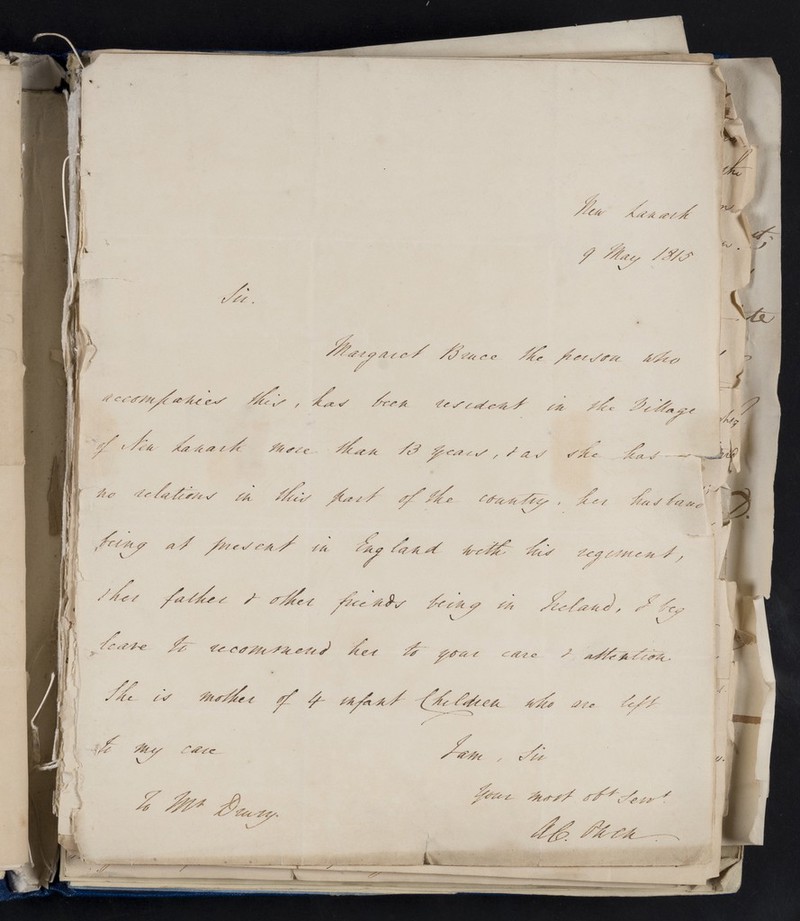 New Lanark
9 May 1815
Sir.
Margaret Bruce the person who
accompanies this, has been resident in the Village
of New Lanark more than 13 years, & as she has —
no relations in this part of the country, her husband
being at present in England with his regiment,
& her father & other friends being in Ireland, I beg
leave to recommend her to your care & attention
She is mother of 4 infant Children who are left
to my care
I am, Sir
Your most obt Servt
To Mr Drury.
A C. Owen